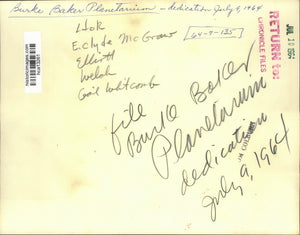 Burke Baker Planetarium - dedication July 9, 1964
HOK
E. Clyde McGraw [64-7-135]
Elliott
Welsh
Gail Whitcomb
file
Burke Baker
Planetarium
dedication
July 9, 1964
RETURN to:
CHRONICLE FILES
JUL 10 1964